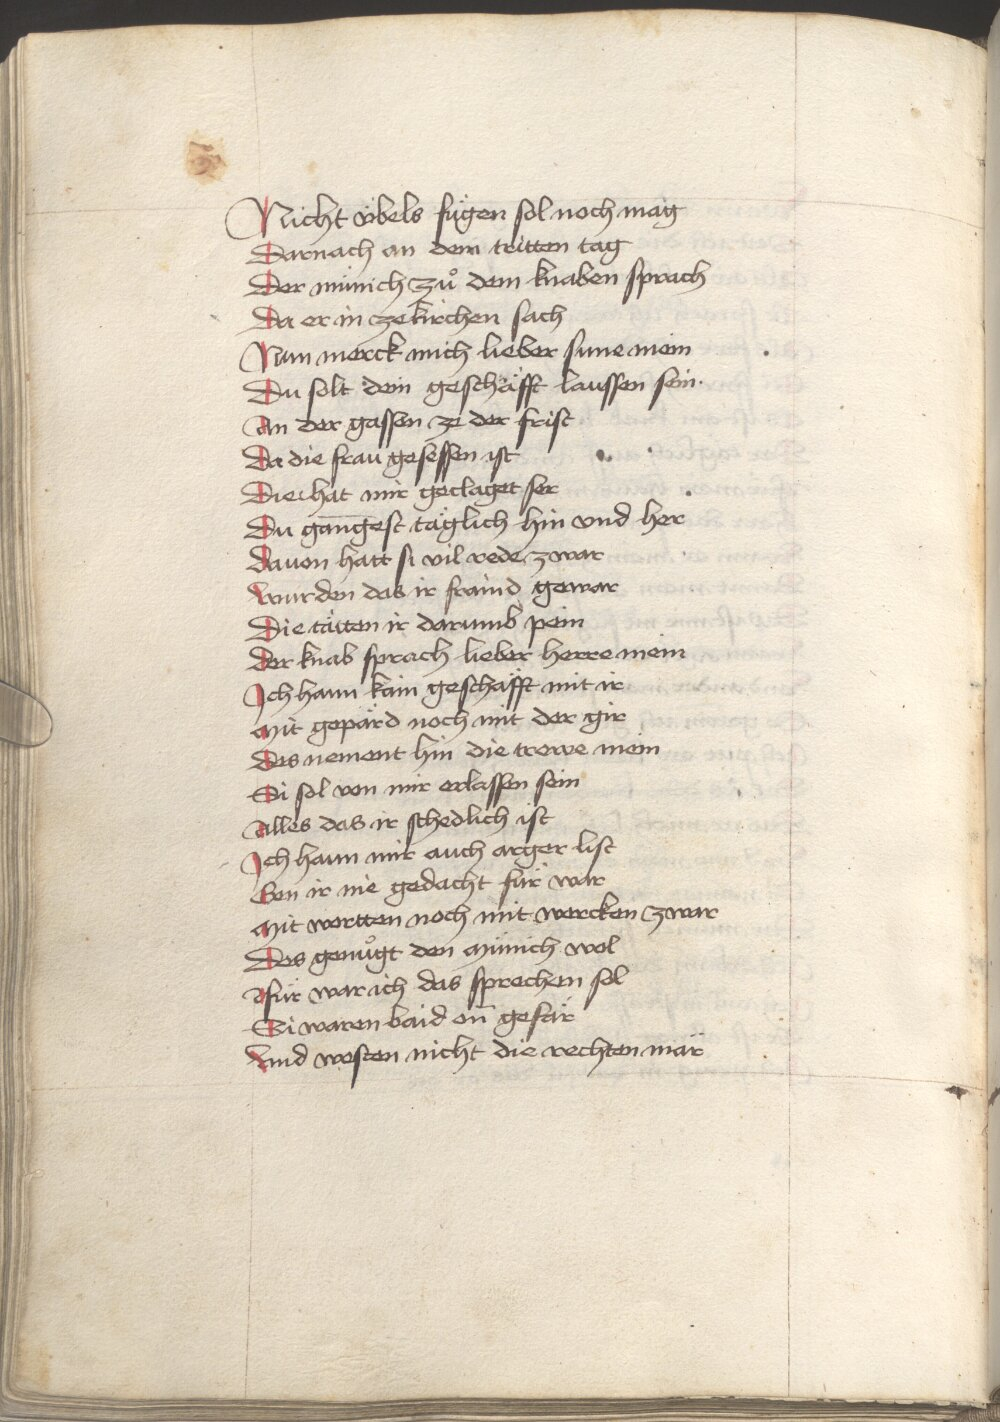 Nicht übels fügen sol noch mag
Darnach an dem tritten tag
Der münich zů dem knaben sprach
Da er in ze kirchen sach
Nun merck mich lieber sune mein
Du solt dein geschäfft laussen sein
An der gassen ze der frist
Da die frau gesessen ist
Die hat mir geclaget ser
Du gangest täglich hin vnd her
Dauon hatt si vil rede zwar
Wurden das ir fraind gewar
Die tätten ir darumb pein
Der knab sprach lieber herre mein
Ich hann kain geschäfft mit ir
Mit gepärd noch mit der gir
Des nement hin die trewe mein
Si sol von mir erlassen sein
Alles das ir schedlich ist
Ich hann mir auch arger list
Gen ir nie gedacht für war
Mit wortten noch mit wercken zwar
Des genůgt den münich wol
Für war ich das sprechen sol
Si waren baid on gefär
Vnd westen nicht die rechten mär